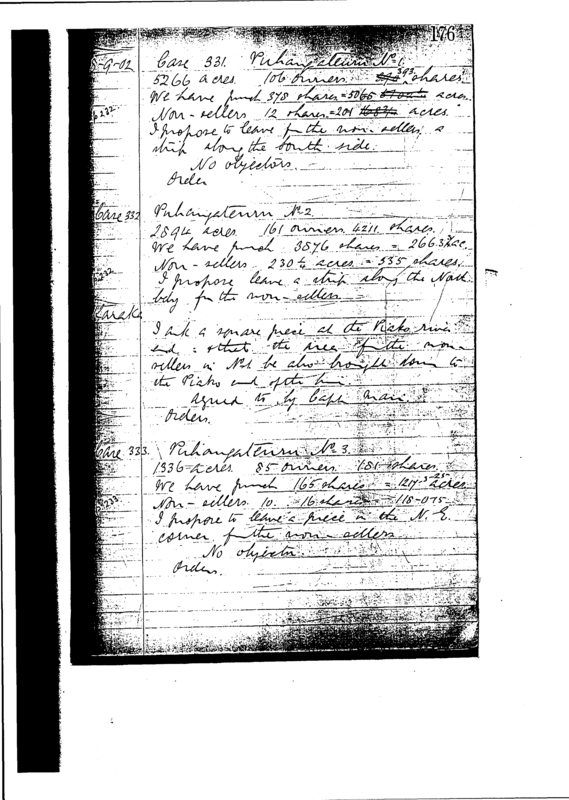 176
5-9-02 Case 331. Puhangateuru No 1.
5266 acres. 106 owners. 393 shares.
We have purch 378 shares = 5065 acres.
Non-sellers 12 shares = 201 acres.
I propose to leave for the non-sellers a
strip along the South side.
No objectors.
Order
Case 332 Puhangateuru No 2
2894 acres 161 owners 4211 shares.
We have purch 3876 shares = ac.
Non-sellers 230¼ acres = 335 shares.
I propose leave a strip along the North
bdy for the non-sellers.
I ask a square piece at the Piako river
end & that the area of the non
sellers in No 1 be also brought down to
the Piako end of the
agreed to by Capt Mair.
Orders.
Case 333. Puhangateuru No 3.
1336 acres 85 owners 181 shares.
We have purch 165 shares = acres
Non-sellers 10. = 16 shares = 118-075
I propose to leave a piece in the N. E.
corner for the non-sellers
No objectn.
Orders.